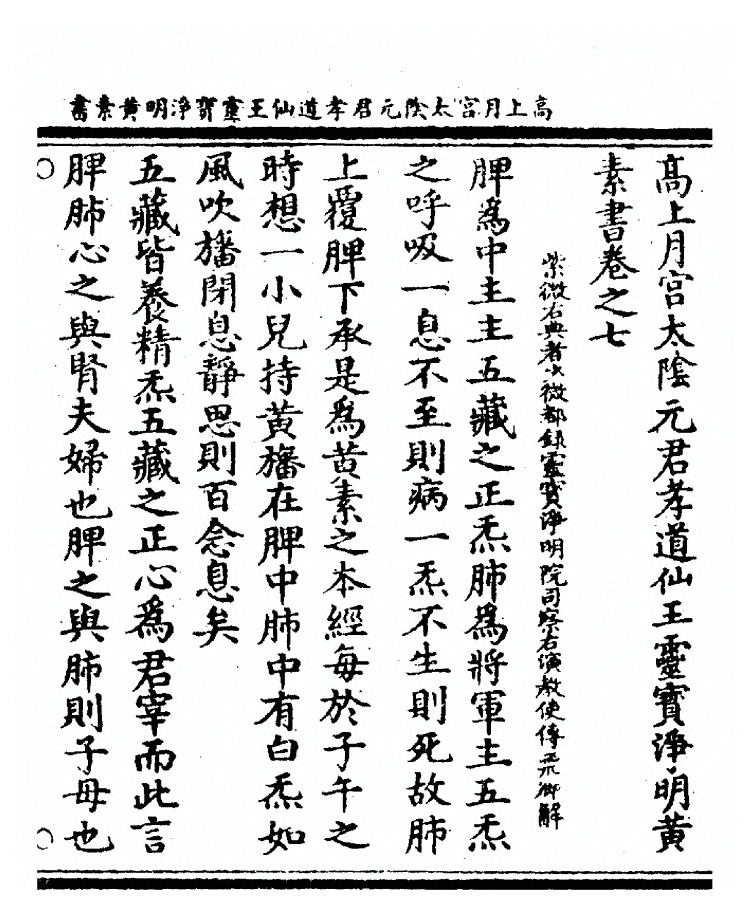 高上月宮太陰元君孝道仙王靈寶淨明黃素書
高上月宮太陰元君孝道仙王靈寶淨明黃
素書卷之七
紫微右典者少微都錄靈寶淨明院司察右演教使傅飛卿解
脾爲中主主五藏之正炁肺爲將軍主五炁
之呼吸一息不至則病一炁不生則死故肺
上覆脾下承是爲黃素之本經每於子午之
時想一小兒持黃旛在脾中肺中有白炁如
風吹旛閉息靜思則百念息矣
五藏皆養精炁五藏之正心爲君宰而此言
脾肺心之與腎夫婦也脾之與肺則子母也